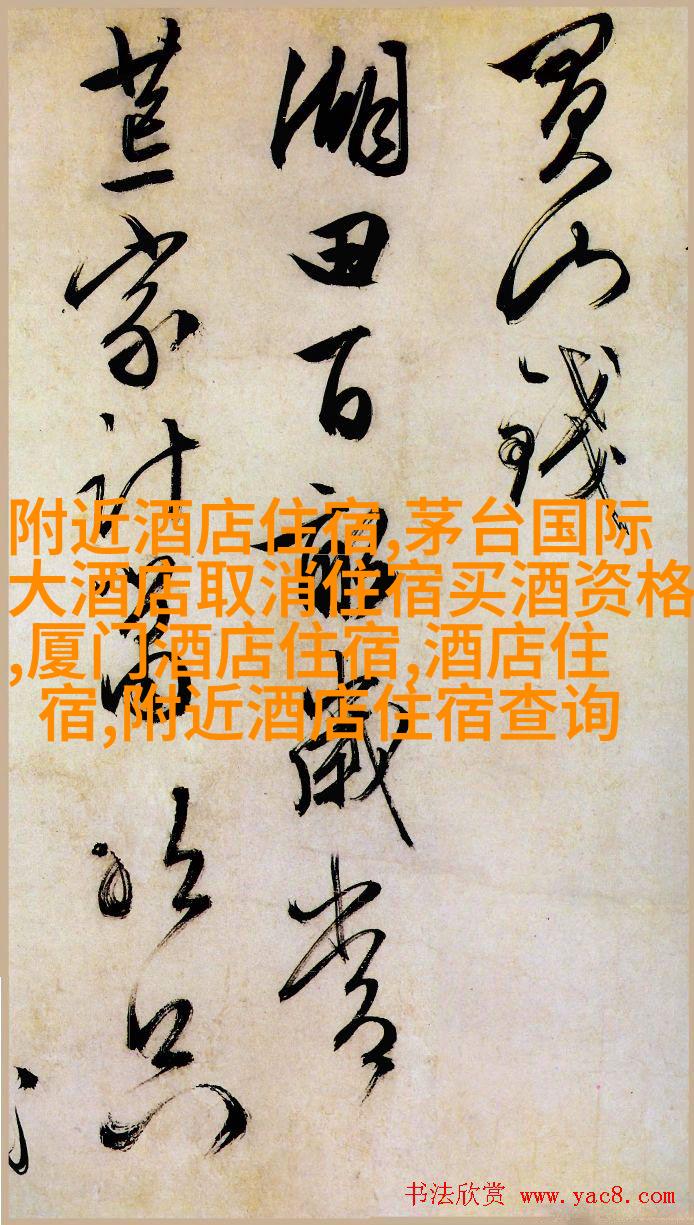 買山錢
湖田百歲常
荒家計只
附近酒店住宿,茅台国际
大酒店取消住宿买酒资格
,厦门酒店住宿,酒店住
宿,附近酒店住宿查询
书法欣赏 www.yac8.com